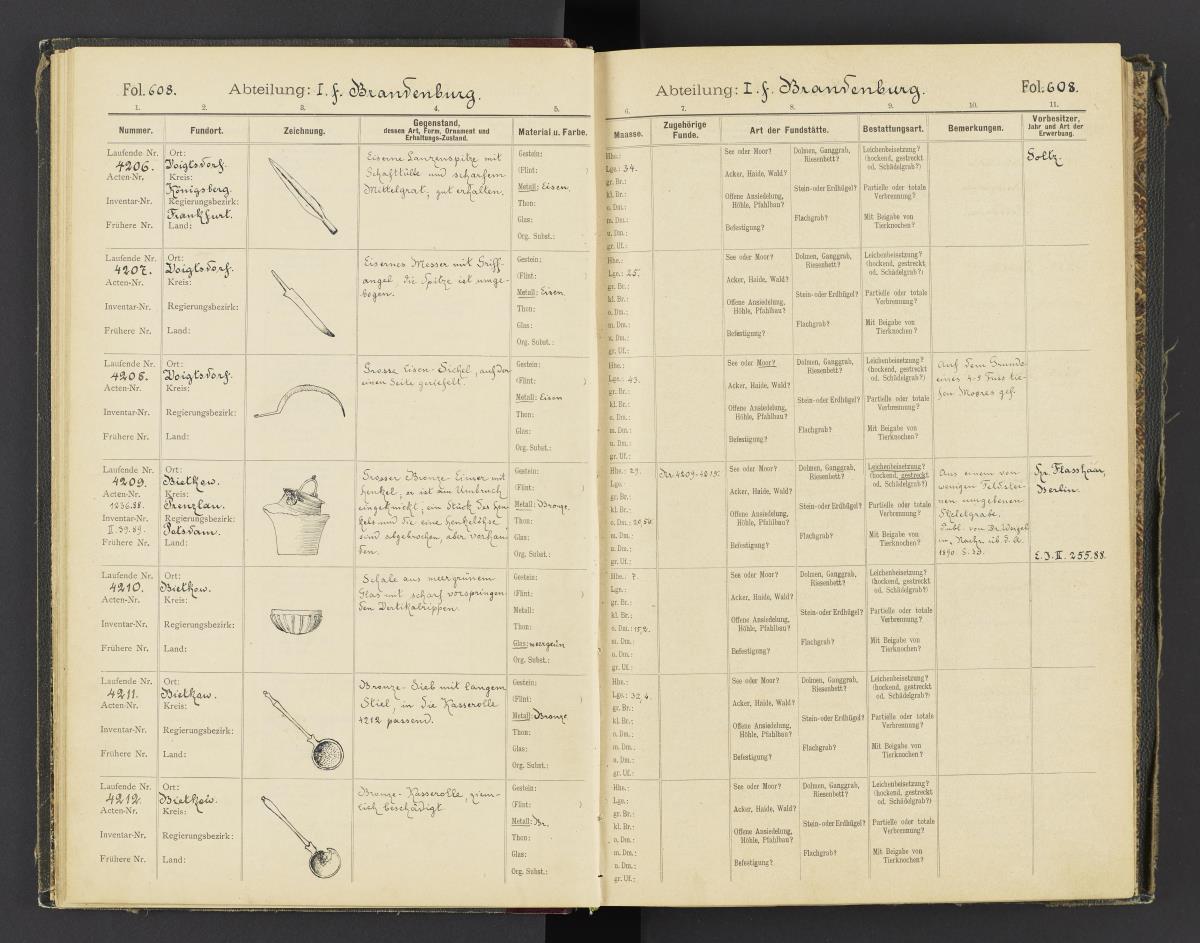 Fol. 608. Abteilung: I. f. Brandenburg.
1. 2. 3. 4. 5.
Nummer. Fundort. Zeichnung. Gegenstand, dessen Art, Form, Ornament und Erhaltungs-Zustand. Material u. Farbe.
Laufende Nr. 4206.
Acten-Nr.
Inventar-Nr.
Frühere Nr.
Ort: Voigtsdorf.
Kreis: Königsberg.
Regierungsbezirk: Frankfurt.
Land:
Eiserne Lanzenspitze mit
Schafttülle und scharfem
Mittelgrat, gut erhalten.
Gestein:
(Flint: )
Metall: Eisen.
Thon:
Glas:
Org. Subst.:
Laufende Nr. 4207.
Acten-Nr.
Inventar-Nr.
Frühere Nr.
Ort: Voigtsdorf.
Kreis:
Regierungsbezirk:
Land:
Eisernes Messer mit Griff-
angel, die Spitze ist umge-
bogen.
Gestein:
(Flint: )
Metall: Eisen.
Thon:
Glas:
Org. Subst.:
Laufende Nr. 4208.
Acten-Nr.
Inventar-Nr.
Frühere Nr.
Ort: Voigtsdorf.
Kreis:
Regierungsbezirk:
Land:
Grosse Eisen-Sichel, auf der
einen Seite geriefelt.
Gestein:
(Flint: )
Metall: Eisen
Thon:
Glas:
Org. Subst.:
Laufende Nr. 4209.
Acten-Nr. 1236.88.
Inventar-Nr. II. 39.89.
Frühere Nr.
Ort: Bietkow.
Kreis: Prenzlau.
Regierungsbezirk: Potsdam.
Land:
Grosser Bronze-Eimer mit
Henkel, er ist am Umbruch
eingeknickt; ein Stück des Hen-
kels und die eine Henkelöhse
sind abgebrochen, aber vorhan-
den.
Gestein:
(Flint: )
Metall: Bronze.
Thon:
Glas:
Org. Subst.:
Laufende Nr. 4210.
Acten-Nr.
Inventar-Nr.
Frühere Nr.
Ort: Bietkow.
Kreis:
Regierungsbezirk:
Land:
Schale aus meergrünem
Glas mit scharf vorspringen-
den Vertikalrippen.
Gestein:
(Flint: )
Metall:
Thon:
Glas: meergrün
Org. Subst.:
Laufende Nr. 4211.
Acten-Nr.
Inventar-Nr.
Frühere Nr.
Ort: Bietkow.
Kreis:
Regierungsbezirk:
Land:
Bronze-Sieb mit langem
Stiel, in die Kasserolle
4212 passend.
Gestein:
(Flint: )
Metall: Bronze
Thon:
Glas:
Org. Subst.:
Laufende Nr. 4212.
Acten-Nr.
Inventar-Nr.
Frühere Nr.
Ort: Bietkow.
Kreis:
Regierungsbezirk:
Land:
Bronze-Kasserolle, ziem-
lich beschädigt
Gestein:
(Flint: )
Metall: Br.
Thon:
Glas:
Org. Subst.:
Abteilung: I. f. Brandenburg. Fol. 608.
6. 7. 8. 9. 10. 11.
Maasse. Zugehörige Funde. Art der Fundstätte. Bestattungsart. Bemerkungen. Vorbesitzer, Jahr und Art der Erwerbung.
Hhe.:
Lge.: 34.
gr. Br.:
kl. Br.:
o. Dm.:
m. Dm.:
u. Dm.:
gr. Uf.:
See oder Moor?
Acker, Haide, Wald?
Offene Ansiedelung, Höhle, Pfahlbau?
Befestigung?
Dolmen, Ganggrab, Riesenbett?
Stein- oder Erdhügel?
Flachgrab?
Leichenbeisetzung? (hockend, gestreckt od. Schädelgrab?)
Partielle oder totale Verbrennung?
Mit Beigabe von Tierknochen?
Soltz.
Hhe.:
Lge.: 25.
gr. Br.:
kl. Br.:
o. Dm.:
m. Dm.:
u. Dm.:
gr. Uf.:
See oder Moor?
Acker, Haide, Wald?
Offene Ansiedelung, Höhle, Pfahlbau?
Befestigung?
Dolmen, Ganggrab, Riesenbett?
Stein- oder Erdhügel?
Flachgrab?
Leichenbeisetzung? (hockend, gestreckt od. Schädelgrab?)
Partielle oder totale Verbrennung?
Mit Beigabe von Tierknochen?
Hhe.:
Lge.: 43.
gr. Br.:
kl. Br.:
o. Dm.:
m. Dm.:
u. Dm.:
gr. Uf.:
See oder Moor?
Acker, Haide, Wald?
Offene Ansiedelung, Höhle, Pfahlbau?
Befestigung?
Dolmen, Ganggrab, Riesenbett?
Stein- oder Erdhügel?
Flachgrab?
Leichenbeisetzung? (hockend, gestreckt od. Schädelgrab?)
Partielle oder totale Verbrennung?
Mit Beigabe von Tierknochen?
Auf dem Grunde
eines 4-5 Fuss tie-
fen Moores gef.
Hhe.: 29.
Lge.:
gr. Br.:
kl. Br.:
o. Dm.: 20,50.
m. Dm.:
u. Dm.:
gr. Uf.:
Nr. 4209-4215.
See oder Moor?
Acker, Haide, Wald?
Offene Ansiedelung, Höhle, Pfahlbau?
Befestigung?
Dolmen, Ganggrab, Riesenbett?
Stein- oder Erdhügel?
Flachgrab?
Leichenbeisetzung? (hockend, gestreckt od. Schädelgrab?)
Partielle oder totale Verbrennung?
Mit Beigabe von Tierknochen?
Aus einem von
wenigen Feldstei-
nen umgebenen
Skeletgrabe.
Publ. von Dr. Weigel
in, Nachr. üb. d. A.
1890. S. 39.
Hr. Flasshaar,
Berlin.
E. J. II. 255.88.
Hhe.: 7.
Lge.:
gr. Br.:
kl. Br.:
o. Dm.: 15,2.
m. Dm.:
u. Dm.:
gr. Uf.:
See oder Moor?
Acker, Haide, Wald?
Offene Ansiedelung, Höhle, Pfahlbau?
Befestigung?
Dolmen, Ganggrab, Riesenbett?
Stein- oder Erdhügel?
Flachgrab?
Leichenbeisetzung? (hockend, gestreckt od. Schädelgrab?)
Partielle oder totale Verbrennung?
Mit Beigabe von Tierknochen?
Hhe.:
Lge.: 32,4.
gr. Br.:
kl. Br.:
o. Dm.:
m. Dm.:
u. Dm.:
gr. Uf.:
See oder Moor?
Acker, Haide, Wald?
Offene Ansiedelung, Höhle, Pfahlbau?
Befestigung?
Dolmen, Ganggrab, Riesenbett?
Stein- oder Erdhügel?
Flachgrab?
Leichenbeisetzung? (hockend, gestreckt od. Schädelgrab?)
Partielle oder totale Verbrennung?
Mit Beigabe von Tierknochen?
Hhe.:
Lge.:
gr. Br.:
kl. Br.:
o. Dm.:
m. Dm.:
u. Dm.:
gr. Uf.:
See oder Moor?
Acker, Haide, Wald?
Offene Ansiedelung, Höhle, Pfahlbau?
Befestigung?
Dolmen, Ganggrab, Riesenbett?
Stein- oder Erdhügel?
Flachgrab?
Leichenbeisetzung? (hockend, gestreckt od. Schädelgrab?)
Partielle oder totale Verbrennung?
Mit Beigabe von Tierknochen?